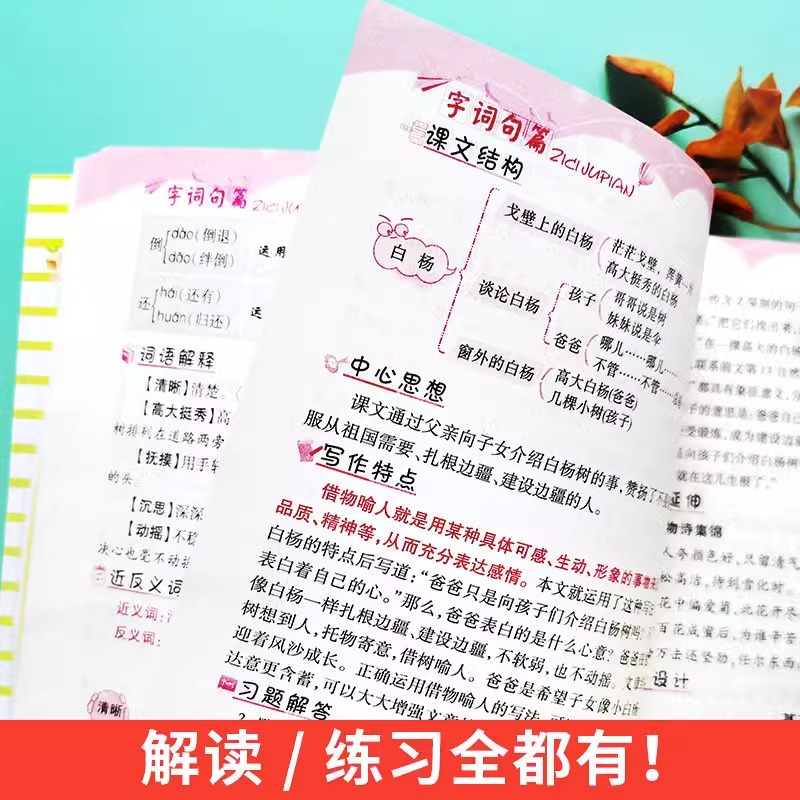 字词句篇
ZICIJUPIAN
倒
dào(倒退)
dǎo(绊倒)
运用
还
hái(还有)
huán(归还)
运
词语解释
【清晰】清楚。
【高大挺秀】高
树排列在道路两旁
【抚摸】用手
的头
【沉思】深深
【动摇】不稳
决心也毫不动摇
近反义词
近义词:
反义词:
清晰
字词句篇
ZICIJUPIAN
课文结构
白杨
戈壁上的白杨
茫茫戈壁,浑黄一
高大挺秀的白杨
谈论白杨
孩子
哥哥说是树
妹妹说是伞
爸爸
哪儿……哪儿……
不管……不管……
窗外的白杨
高大白杨(爸爸)
几棵小树(孩子)
中心思想
课文通过父亲向子女介绍白杨树的事,赞扬了
服从祖国需要、扎根边疆、建设边疆的人。
写作特点
借物喻人就是用某种具体可感、生动、形象的事物来
品质、精神等,从而充分表达感情。本文就运用了这种写
白杨的特点后写道:“爸爸只是向孩子们介绍白杨树吗?
表白着自己的心。”那么,爸爸表白的是什么心意?爸爸
像白杨一样扎根边疆、建设边疆,不软弱,也不动摇。文章
树想到人,托物寄意,借树喻人。爸爸是希望子女像小白杨
迎着风沙成长。正确运用借物喻人的写法,可
达意更含蓄,可以大大增强文章的
习题解答
些含义深刻的句
“在一棵高大的白杨
联系前文第13自然
都具有象征意义,
子的意思是:爸爸自己
受锻炼,成为建设边疆
向孩子们介绍白杨树
就在这儿生根了。”
延伸
物诗集锦
人务颜色好,只留清气
松高洁,待到雪化时。
花中偏爱菊,此花开尽
百花成蜜后,为谁辛苦
万击还坚劲,任尔东西
设计
解读 / 练习全都有!